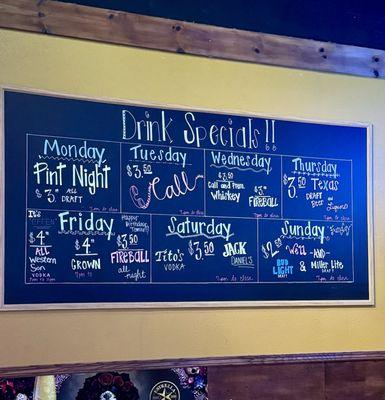 Drink Specials!!
Monday
Pint Night
$3. ALL DRAFT
7pm to close
Tuesday
$3.50
Call
7pm to close
Wednesday
$3.50
Call and Prem.
Whiskey
$3.50
FIREBALL
7pm to close
Thursday
$3.50 Texas
DRAFT
BEER
and
Liquors
7pm to close
Friday
It's
$4
ALL
Western
Son
VODKA
7pm to close
$4
CROWN
Happy
Birthday
$3.50
FIREBALL
all night
Saturday
Tito's
VODKA
$3.50
JACK
DANIEL'S
7pm to close
Sunday
$2.50 Well
BUD
LIGHT
DRAFT
-AND-
& Miller Lite
DRAFT
7pm to close